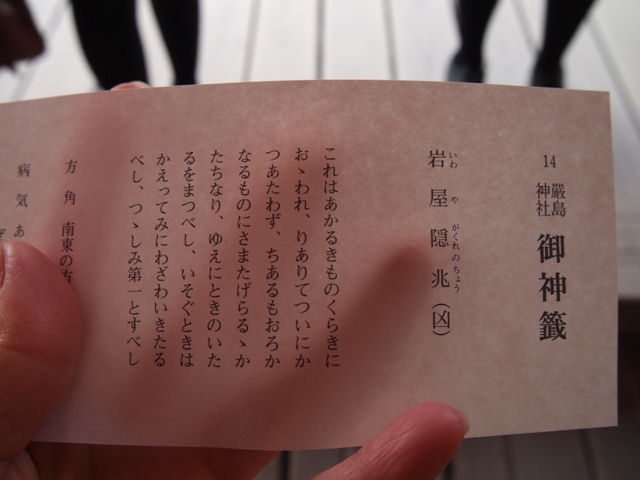 14 嚴島神社 御神籤
岩屋隠兆(凶)
いわ や がくれ の ちょう
これはあかるきものくらきに
おゝわれ、りありてついにか
つあたわず、ちあるもおろか
なるものにさまたげらるゝか
たちなり、ゆえにときのいた
るをまつべし、いそぐときは
かえってみにわざわいきたる
べし、つゝしみ第一とすべし
方角 南東の方
病気 あ